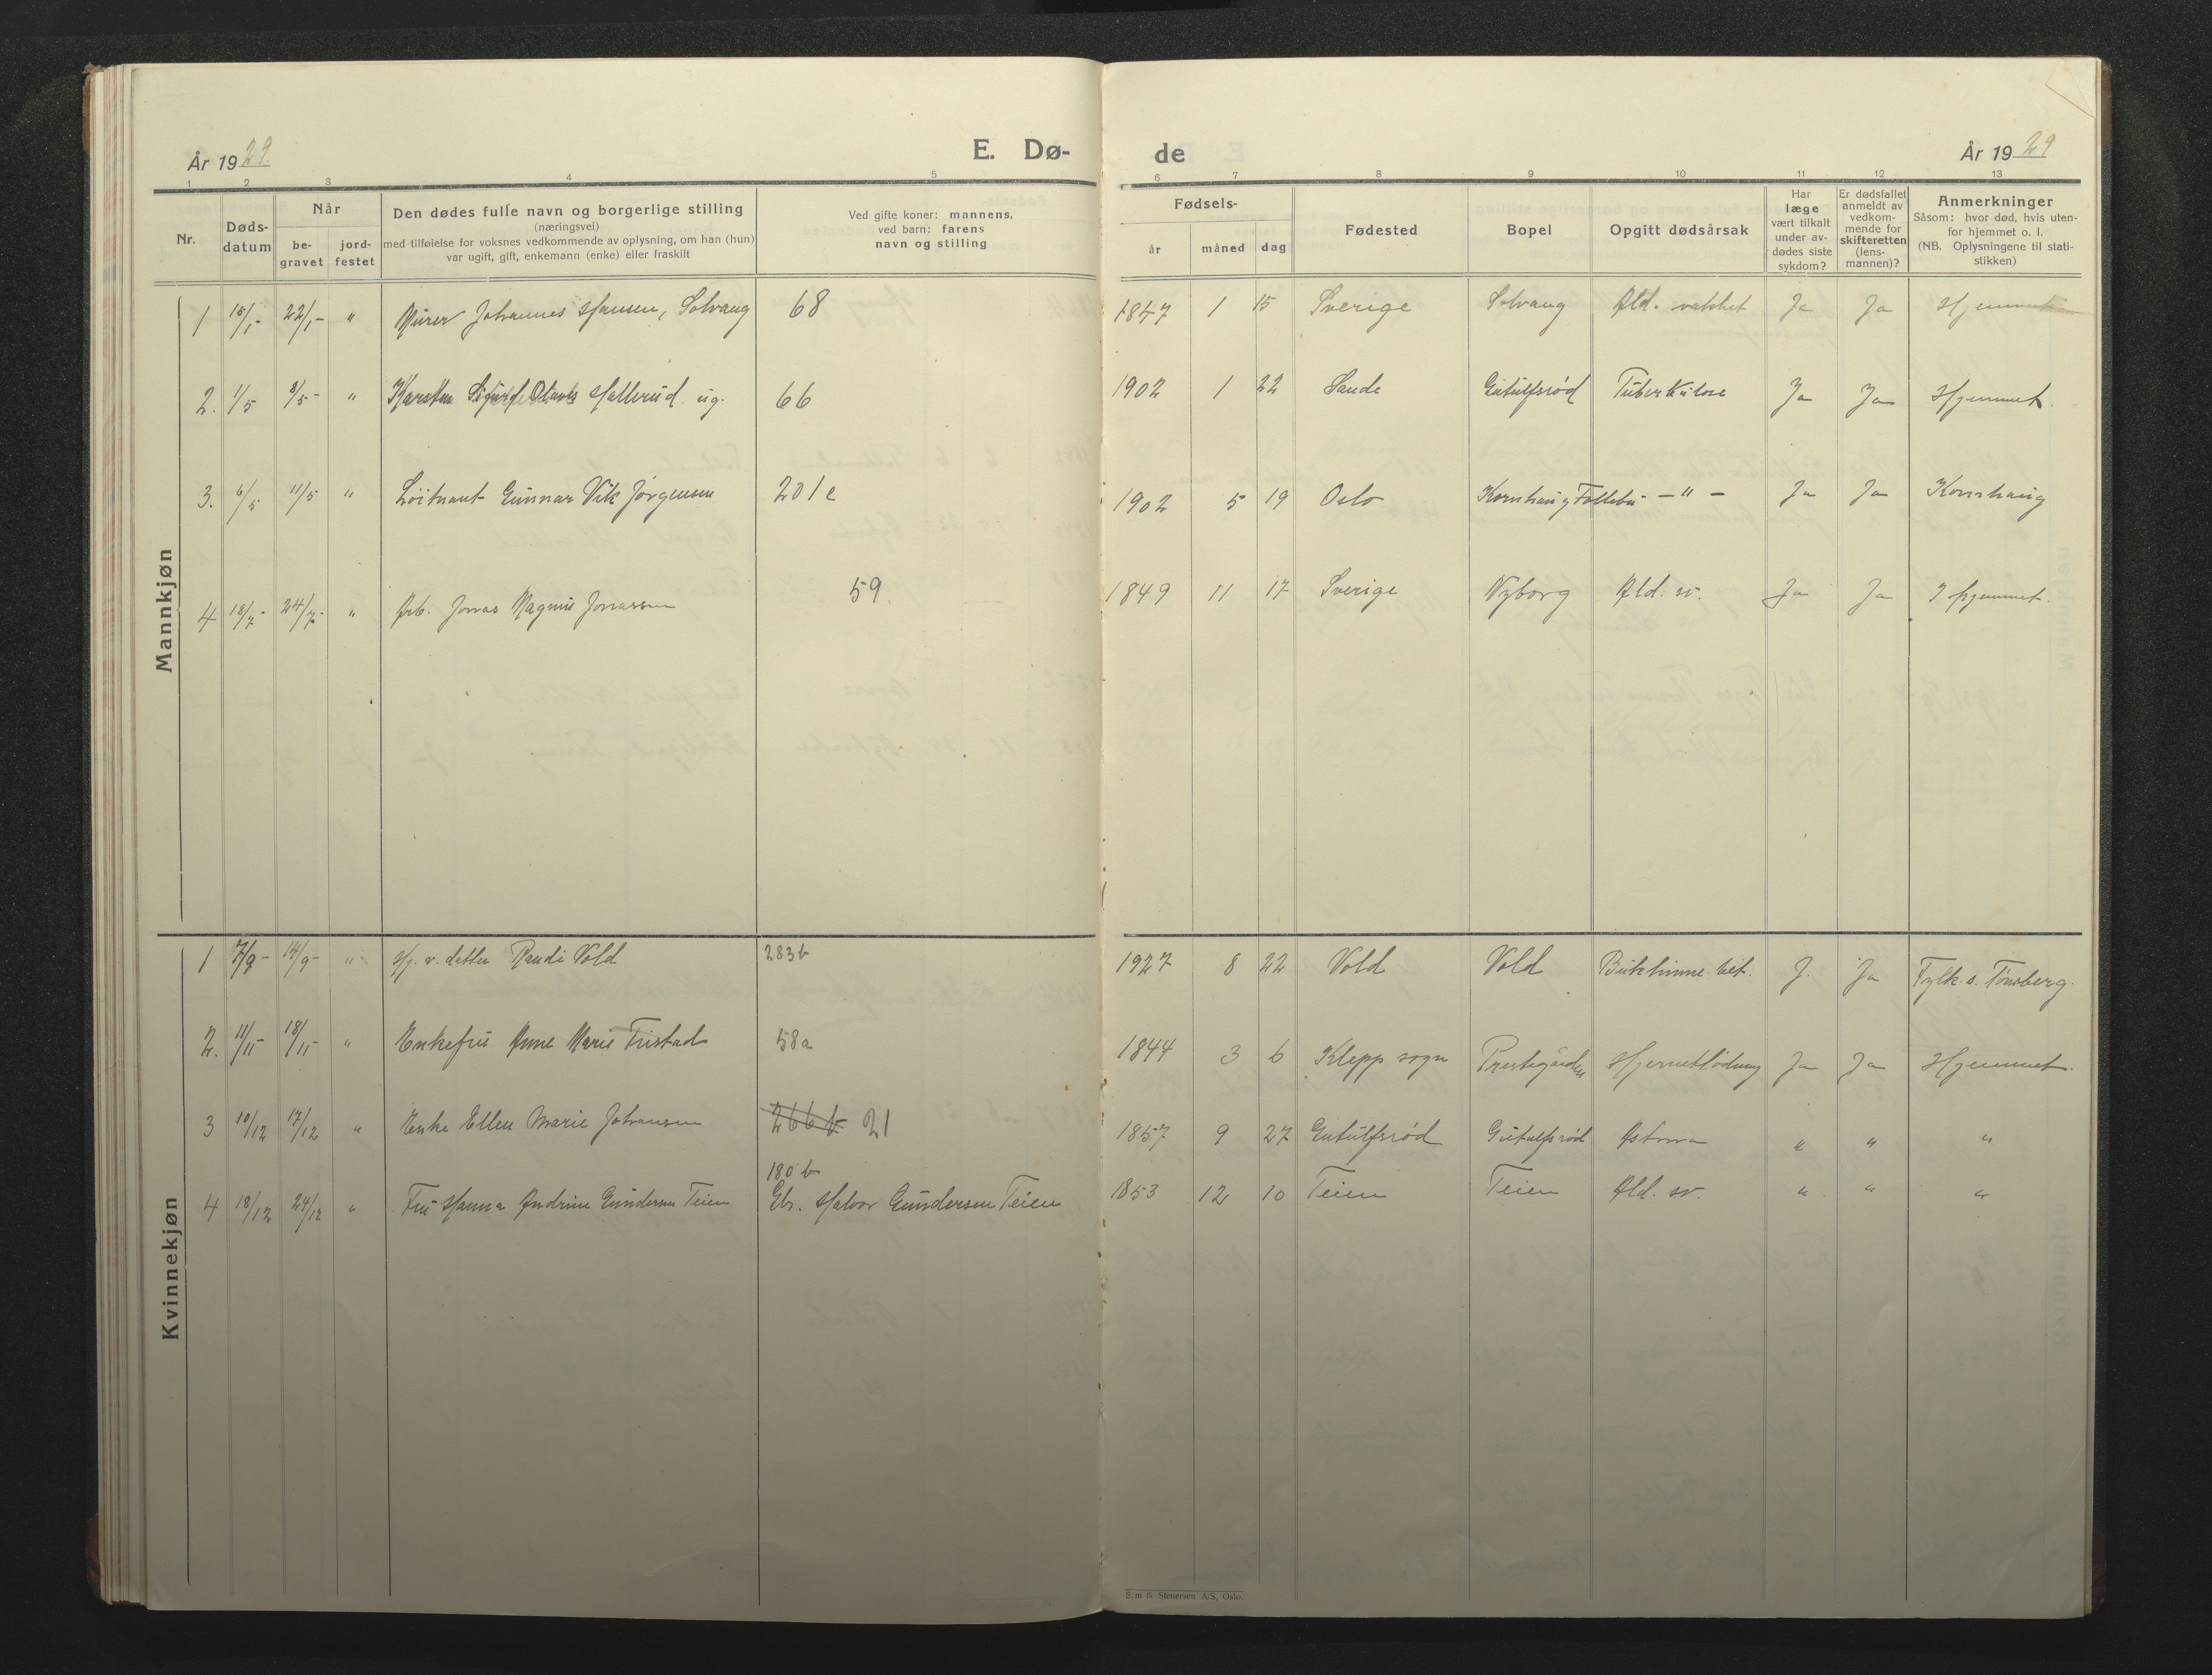 År 1929.
E. Dø-
1 2 3 4 5
Nr.
Døds-
datum
Når
be-
gravet
jord-
festet
Den dødes fulle navn og borgerlige stilling
(næringsvei)
med tilføielse for voksnes vedkommende av oplysning, om han (hun)
var ugift, gift, enkemann (enke) eller fraskilt
Ved gifte koner: mannens,
ved barn: farens
navn og stilling
Mannkjøn
1 22/1- " Murer Johannes Hansen, Solvang 68
2. 1/5 8/5- " Karsten Sigurd Olaves Hallerud ug. 66
3. 6/5 11/5 " Løitnant Gunnar Vik Jørgensen 201c
4 18/7- 24/7- " Arb. Jonas Magnus Jonassen 59.
Kvinnekjøn
1 7/9- 14/9- " Hj. v. datter Randi Vold 283b
2. 11/11- 18/11- " Enkefru Anne Marie Tristad 58a
3 10/12 17/12 " Enke Ellen Marie Johansen 266b 21
180 b
4 18/12 24/12 " Fru Hanna Andrine Gundersen Teien Gbr. Halvor Gundersen Teien
de
År 1929
6 7 8 9 10 11 12 13
Fødsels-
år
måned
dag
Fødested
Bopel
Opgitt dødsårsak
Har
læge
vært tilkalt
under av-
dødes siste
sykdom?
Er dødsfallet
anmeldt av
vedkom-
mende for
skifteretten
(lens-
mannen)?
Anmerkninger
Såsom: hvor død, hvis uten-
for hjemmet o. l.
(NB. Oplysningene til stati-
stikken)
1847 1 15 Sverige Solvang Ald. Ja Ja Hjemmet
1902 1 22 Sande Gutulfsrød Tuberkulose Ja Ja Hjemmet.
1902 5 19 Oslo Kornhaug Follebu - " - Ja Ja Kornhaug
1849 11 17 Sverige Nyborg Ald. sv. Ja Ja I hjemmet.
1927 8 22 Vold Vold Bukhinne. bet. J. Ja Fylk. s. Tønsberg.
1844 3 6 Klepp sogn Prestegården Hjerneblødning Ja Ja Hjemmet.
1857 9 27 Gutulfsrød Gutulfsrød Astma " " "
1853 12 10 Teien Teien Ald. sv. " " "
Sem & Stenersen A/S, Oslo.